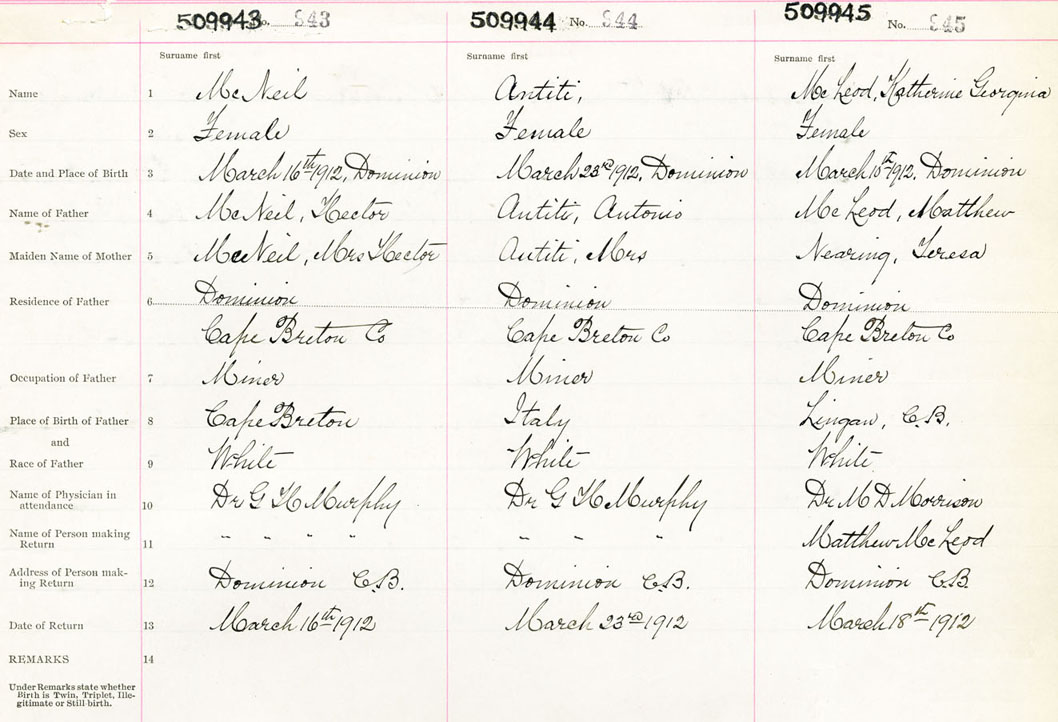 509943 No. 943 509944 No. 944 509945 No. 945
Surname first Surname first Surname first
Name 1 McNeil Antiti, McLeod, Katherine Georgina
Sex 2 Female Female Female
Date and Place of Birth 3 March 16th 1912, Dominion March 23rd 1912, Dominion March 10th 1912, Dominion
Name of Father 4 McNeil, Hector Antiti, Antonio McLeod, Matthew
Maiden Name of Mother 5 McNeil, Mrs Hector Antiti, Mrs Nearing, Teresa
Residence of Father 6 Dominion Dominion Dominion
Cape Breton Co Cape Breton Co Cape Breton Co
Occupation of Father 7 Miner Miner Miner
Place of Birth of Father 8 Cape Breton Italy Lingan, C.B.
and
Race of Father 9 White White White
Name of Physician in attendance 10 Dr G H Murphy Dr G H Murphy Dr M D Morrison
Name of Person making Return 11 " " " " " " " Matthew McLeod
Address of Person making Return 12 Dominion C.B. Dominion C.B. Dominion C.B
Date of Return 13 March 16th 1912 March 23rd 1912 March 18th 1912
REMARKS 14
Under Remarks state whether
Birth is Twin, Triplet, Ille-
gitimate or Still-birth.